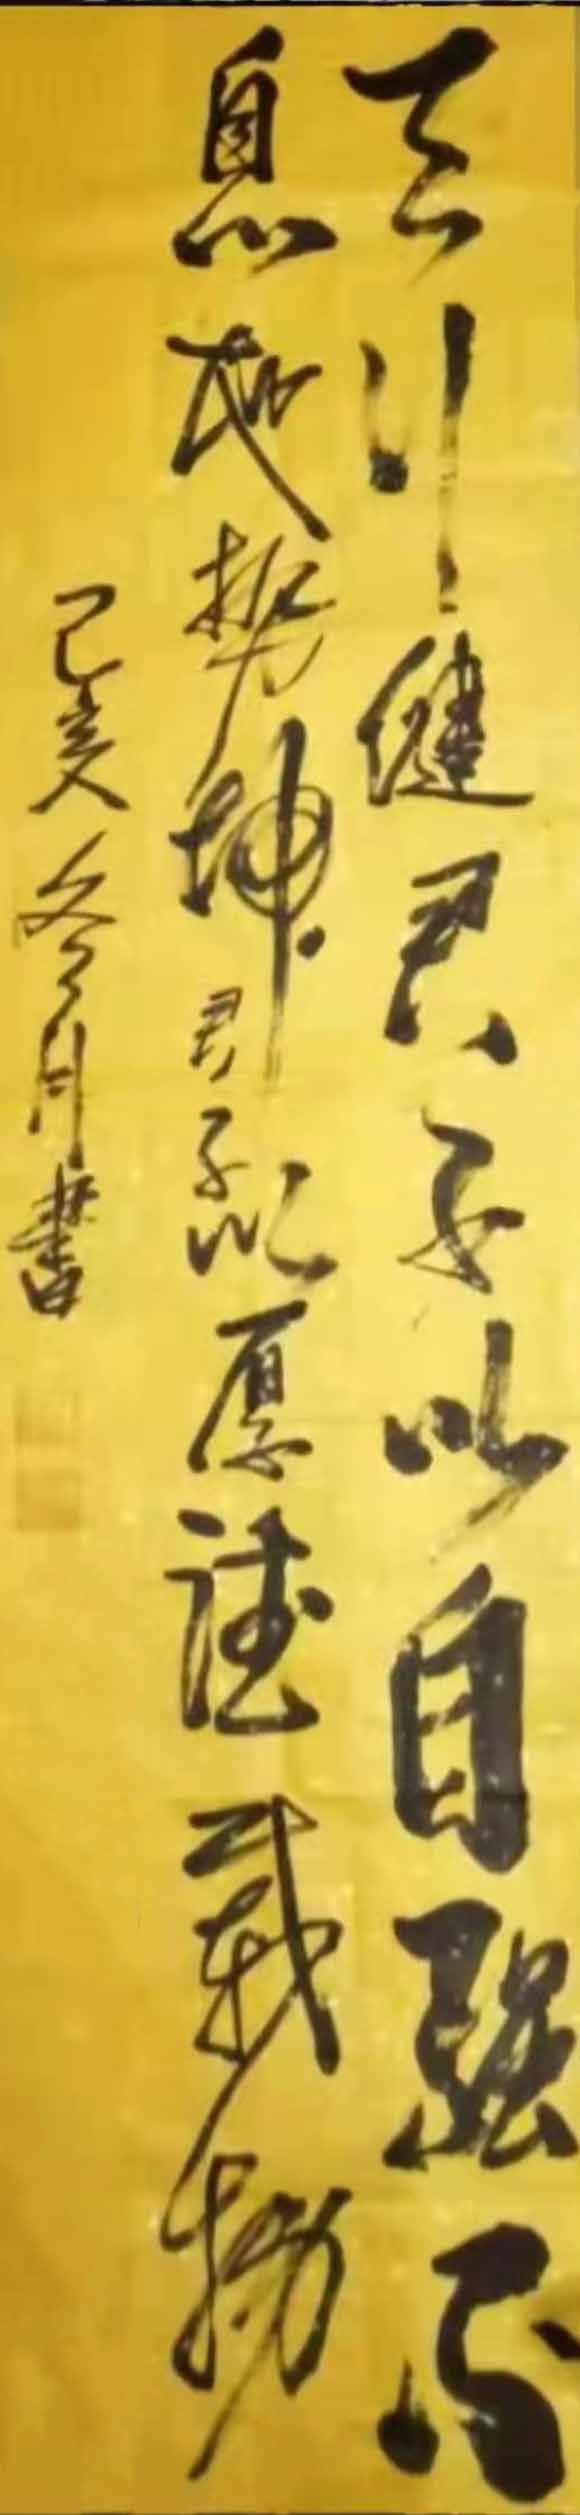 天行健君子以自强不
息地势坤君子以厚德载物
己亥冬月书